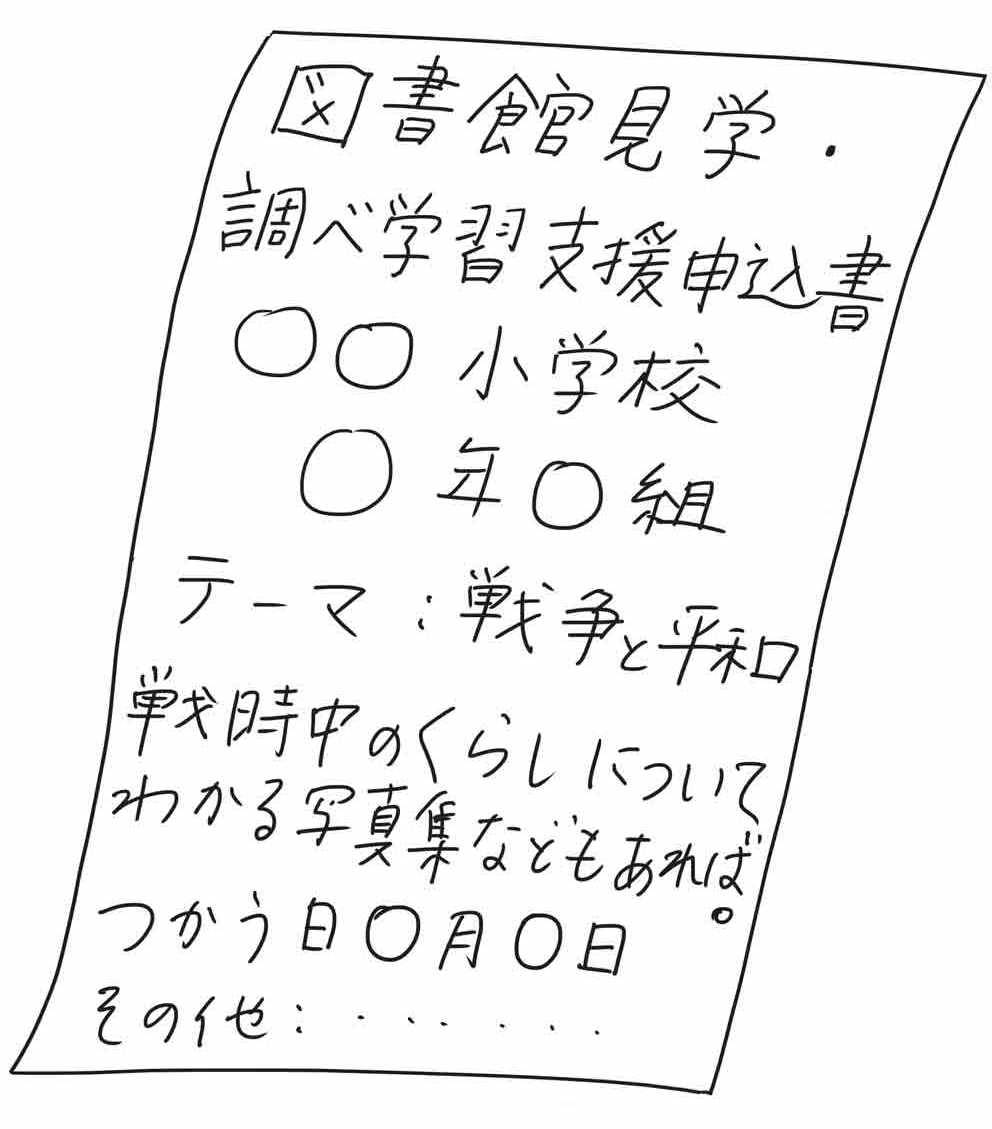 図書館見学・
調べ学習支援申込書
〇〇小学校
〇年〇組
テーマ：戦争と平和
戦時中のくらしについて
わかる写真集などもあれば。
つかう日〇月〇日
その他：・・・・・・・